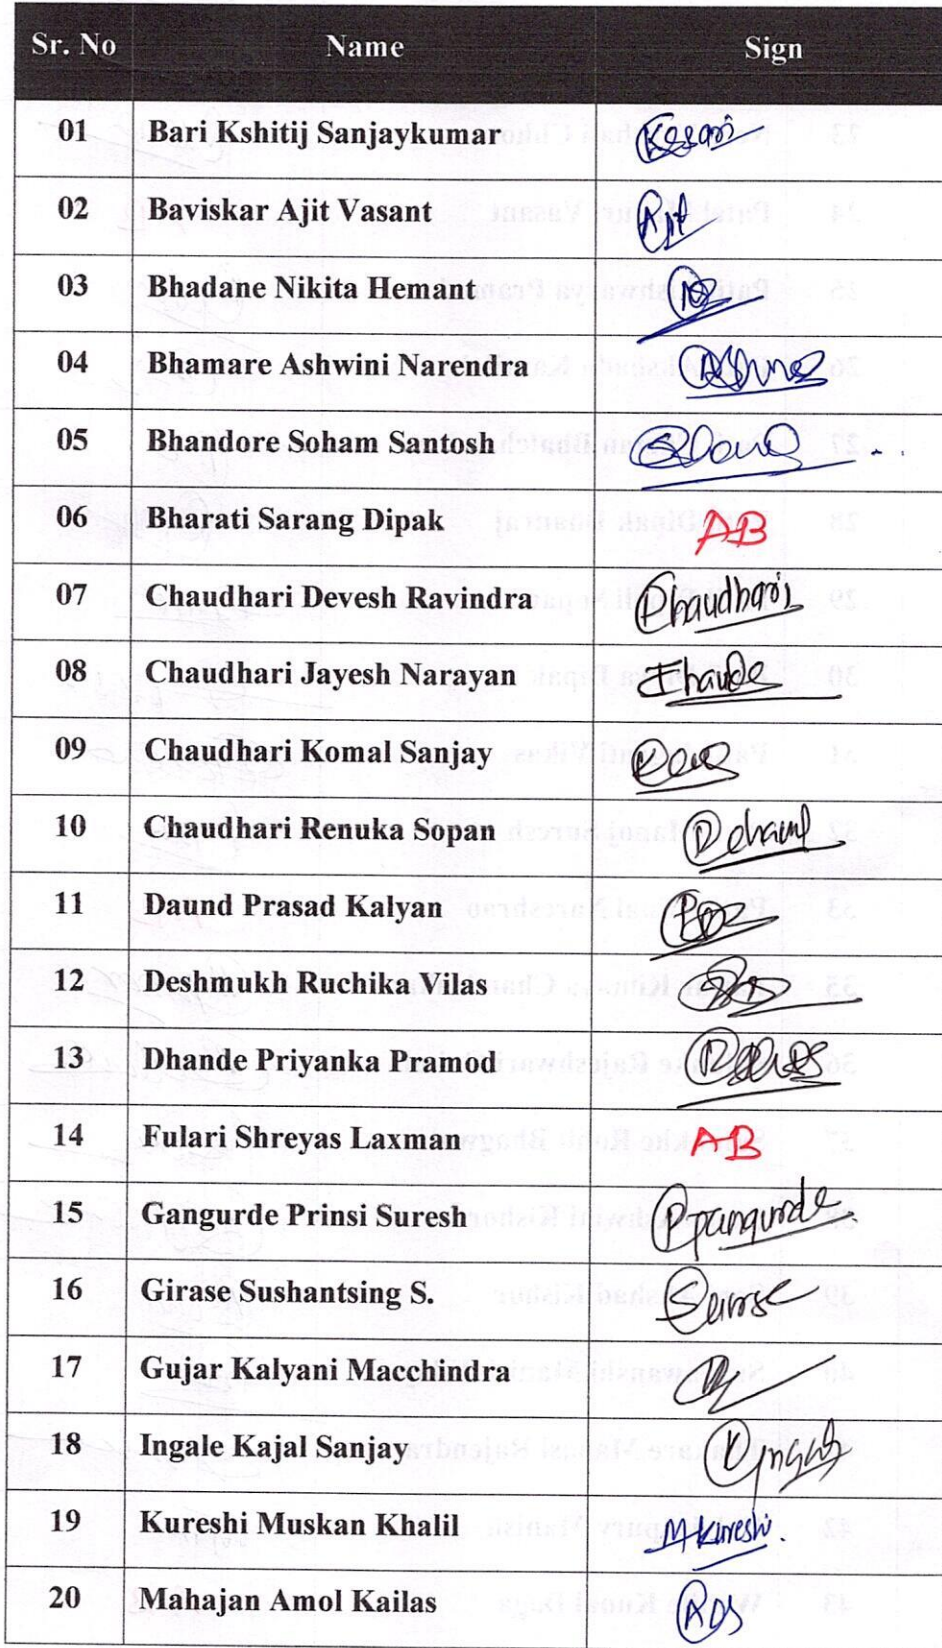 Sr. No Name Sign
01 Bari Kshitij Sanjaykumar
02 Baviskar Ajit Vasant Ajit
03 Bhadane Nikita Hemant
04 Bhamare Ashwini Narendra
05 Bhandore Soham Santosh
06 Bharati Sarang Dipak AB
07 Chaudhari Devesh Ravindra Chaudhari
08 Chaudhari Jayesh Narayan
09 Chaudhari Komal Sanjay
10 Chaudhari Renuka Sopan
11 Daund Prasad Kalyan
12 Deshmukh Ruchika Vilas
13 Dhande Priyanka Pramod
14 Fulari Shreyas Laxman AB
15 Gangurde Prinsi Suresh
16 Girase Sushantsing S.
17 Gujar Kalyani Macchindra
18 Ingale Kajal Sanjay
19 Kureshi Muskan Khalil M Kureshi.
20 Mahajan Amol Kailas